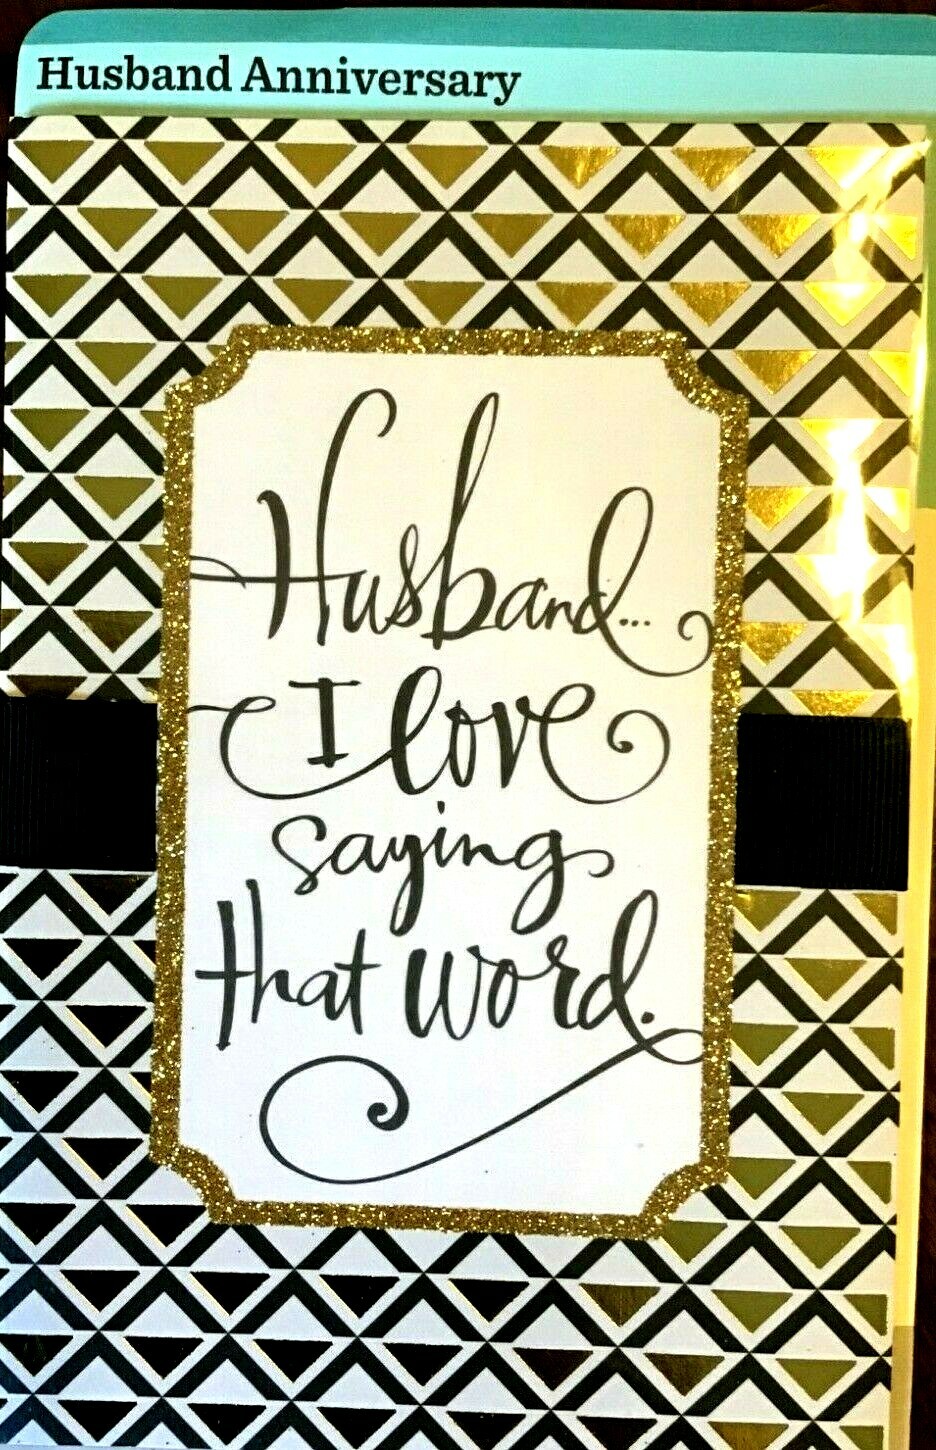 Husband Anniversary
Husband...
I love
saying
that word.